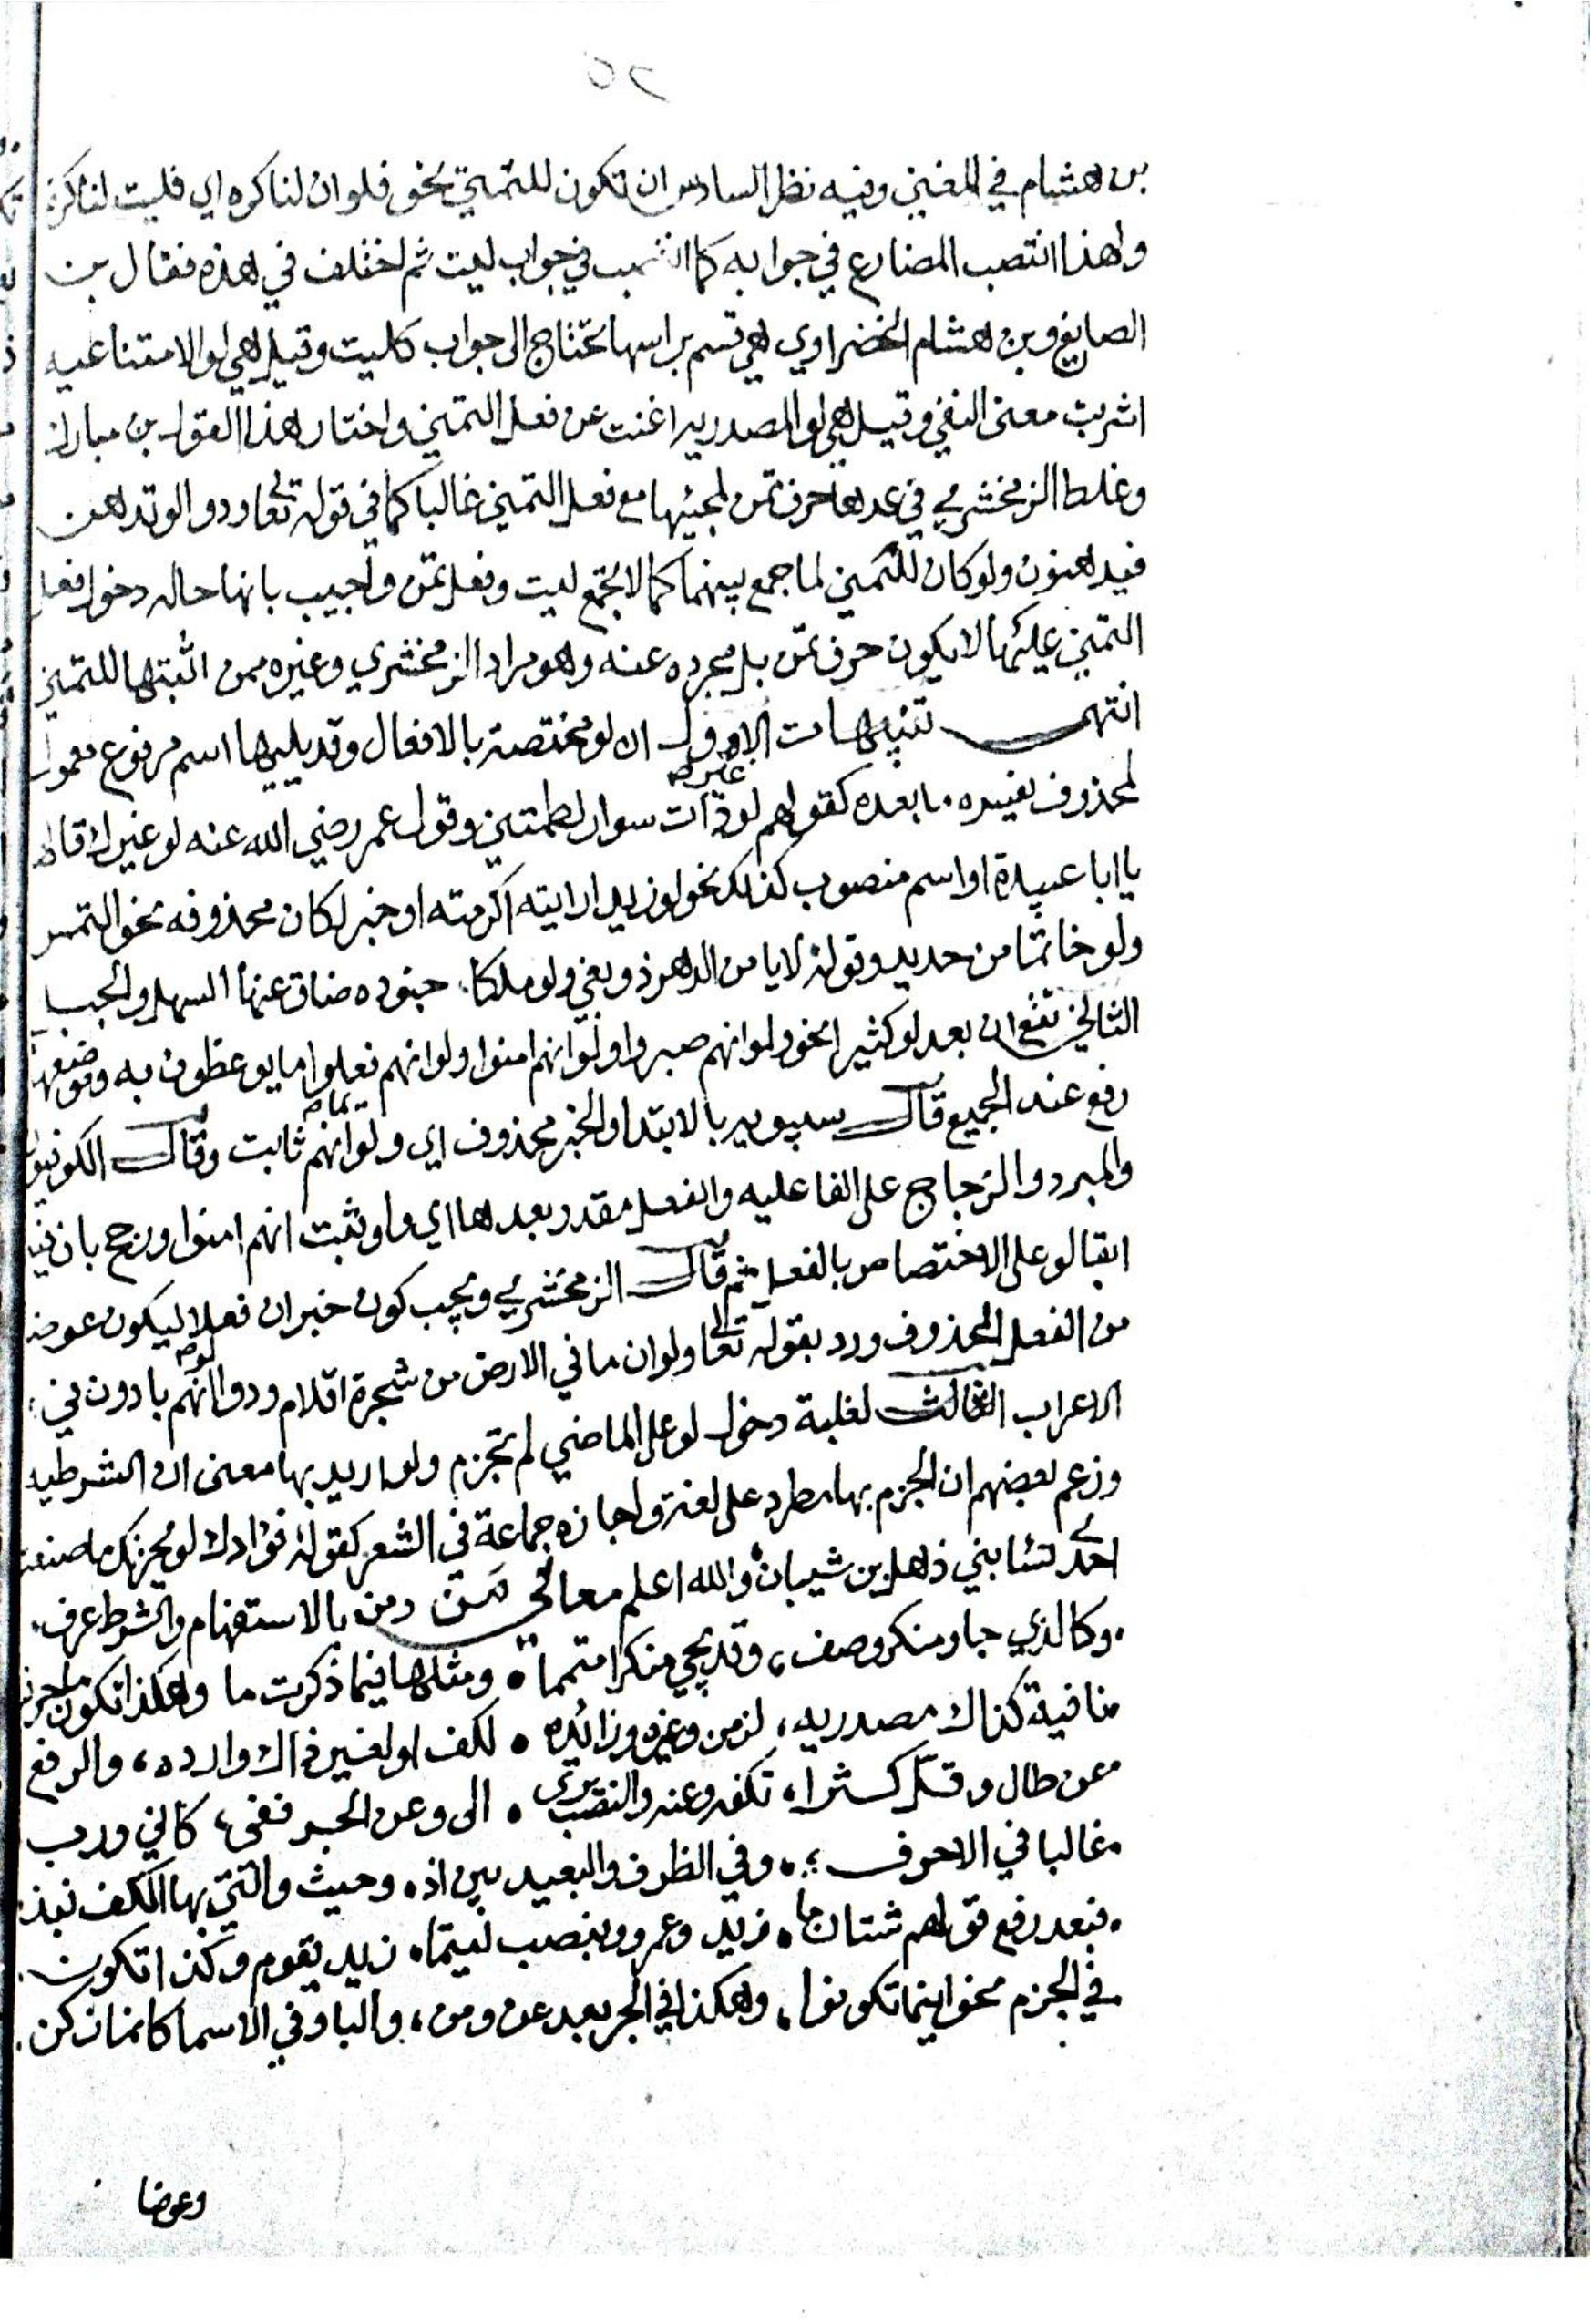 ٢٥
بن هشام في المغني وفيه نظر السادس ان تكون للتمني نحو فلو ان لنا كره اي فليت لنا كرة
ولهذا انتصب المضارع في جوابه كما انتصب في جواب ليت ثم اختلف في هذه فقال بن
الصايغ وبن هشام الخضراوي هي قسم براسها تحتاج الى جواب كليت وقيل هي لو الامتناعيه
اشربت معنى النفي وقيل هي لو المصدريه اغنت عن فعل التمني واختار هذا القول بن مبارك
وغلط الزمخشري في عدها حرف تمن لمجيئها مع فعل التمني غالبا كما في قوله تعالى ودوا لو تدهن
فيدهنون ولو كان للتمني لما جمع بينهما كما لا يجمع ليت وفعل تمن واجيب بانها حاله دخول فعل
التمني عليها لا يكون حرف تمن بل مجرده عنه وهو مراد الزمخشري وغيره ممن اثبتها للتمني
انتهى تنبيهات الاول ان لو مختصة بالافعال وقد يليها اسم مرفوع معمول
لمحذوف يفسره ما بعده كقولهم لو غير ذات سوار لطمتني وقول عمر رضي الله عنه لو غيرك قالها
يا ابا عبيدة او اسم منصوب كذلك نحو لو زيدا رايته اكرمته او خبر لكان محذوفه نحو التمس
ولو خاتما من حديد وقوله لا يامن الدهر ذو بغي ولو ملكا، جنوده ضاق عنها السهل والجبل
الثاني تقع ان بعد لو كثيرا نحو ولو انهم صبروا ولو انهم امنوا ولو انهم فعلوا ما يوعظون به وموضعها
رفع عند الجميع قال سيبويه بالابتدا والخبر محذوف اي ولو ايمانهم ثابت وقال الكوفيون
والمبرد والزجاج على الفاعليه والفعل مقدر بعدها اي ولو ثبت انهم امنوا ورجح بان فيه
ابقا لو على الاختصاص بالفعل ثم قال الزمخشري ويجب كون خبر ان فعلا ليكون عوضا
من الفعل المحذوف ورد بقوله تعالى ولو ان ما في الارض من شجرة اقلام ودوا لو انهم بادون في
الاعراب الثالث لغلبة دخول لو على الماضي لم تجزم ولو اريد بها معنى ان الشرطيه
وزعم بعضهم ان الجزم بها مطرد على لغة واجازه جماعة في الشعر كقوله فؤادك لو يحزنك ما صنعت
احدى نسا بني ذهل بن شيبان، والله اعلم معاني من ومن بالاستفهام والشرط عرف،
وكالذي جا ومنكر وصف، وقد يجي منكرا متمما، ومثلها فيما ذكرت ما وهكذا تكون ما حرفا
نافية كذاك مصدريه، لزمن وغيره وزائده، لكف او لغير ذاك وارده، والرفع
عن طال وقل كثرا، تكفه وعنه والنصب يرى، الى وعن الجر نفى، كاني ورب
غالبا في الاحرف، وفي الظرف والبعيد بين اذ، وحيث والتي بها الكف نبذ،
فبعد رفع قولهم شتان ما، زيد وعمرو وبنصب ليتما، زيد يقوم وكذا تكون
في الجزم نحو اينما تكونوا، وهكذا في الجر بعد عن ومن، والبا وفي الاسما كانما زكن
وعوضا